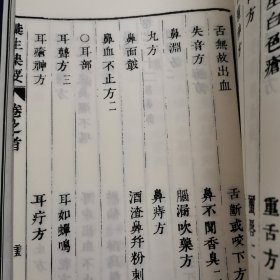 重舌方
舌無故出血
舌斷或咬下方
失音方
鼻不聞香臭
鼻淵
腦漏吹藥方
九方
鼻痔方
鼻面
酒渣鼻并粉刺
鼻血不止方二
○耳部
耳聾方三
耳如蟬鳴
耳癢神方
耳疔方
生集要
卷之首